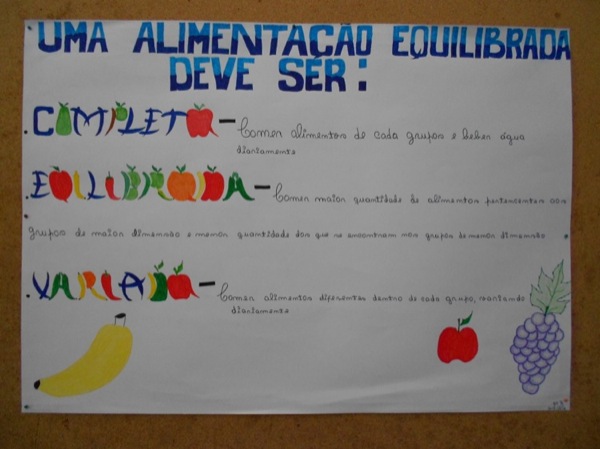 UMA ALIMENTAÇÃO EQUILIBRADA
DEVE SER:
.COMPLETA - Comer alimentos de cada grupo e beber água
diariamente
.EQUILIBRADA - Comer maior quantidade de alimentos pertencentes aos
grupos de maior dimensão e menor quantidade dos que se encontram nos grupos de menor dimensão
.VARIADA - Comer alimentos diferentes dentro de cada grupo, variando
diariamente